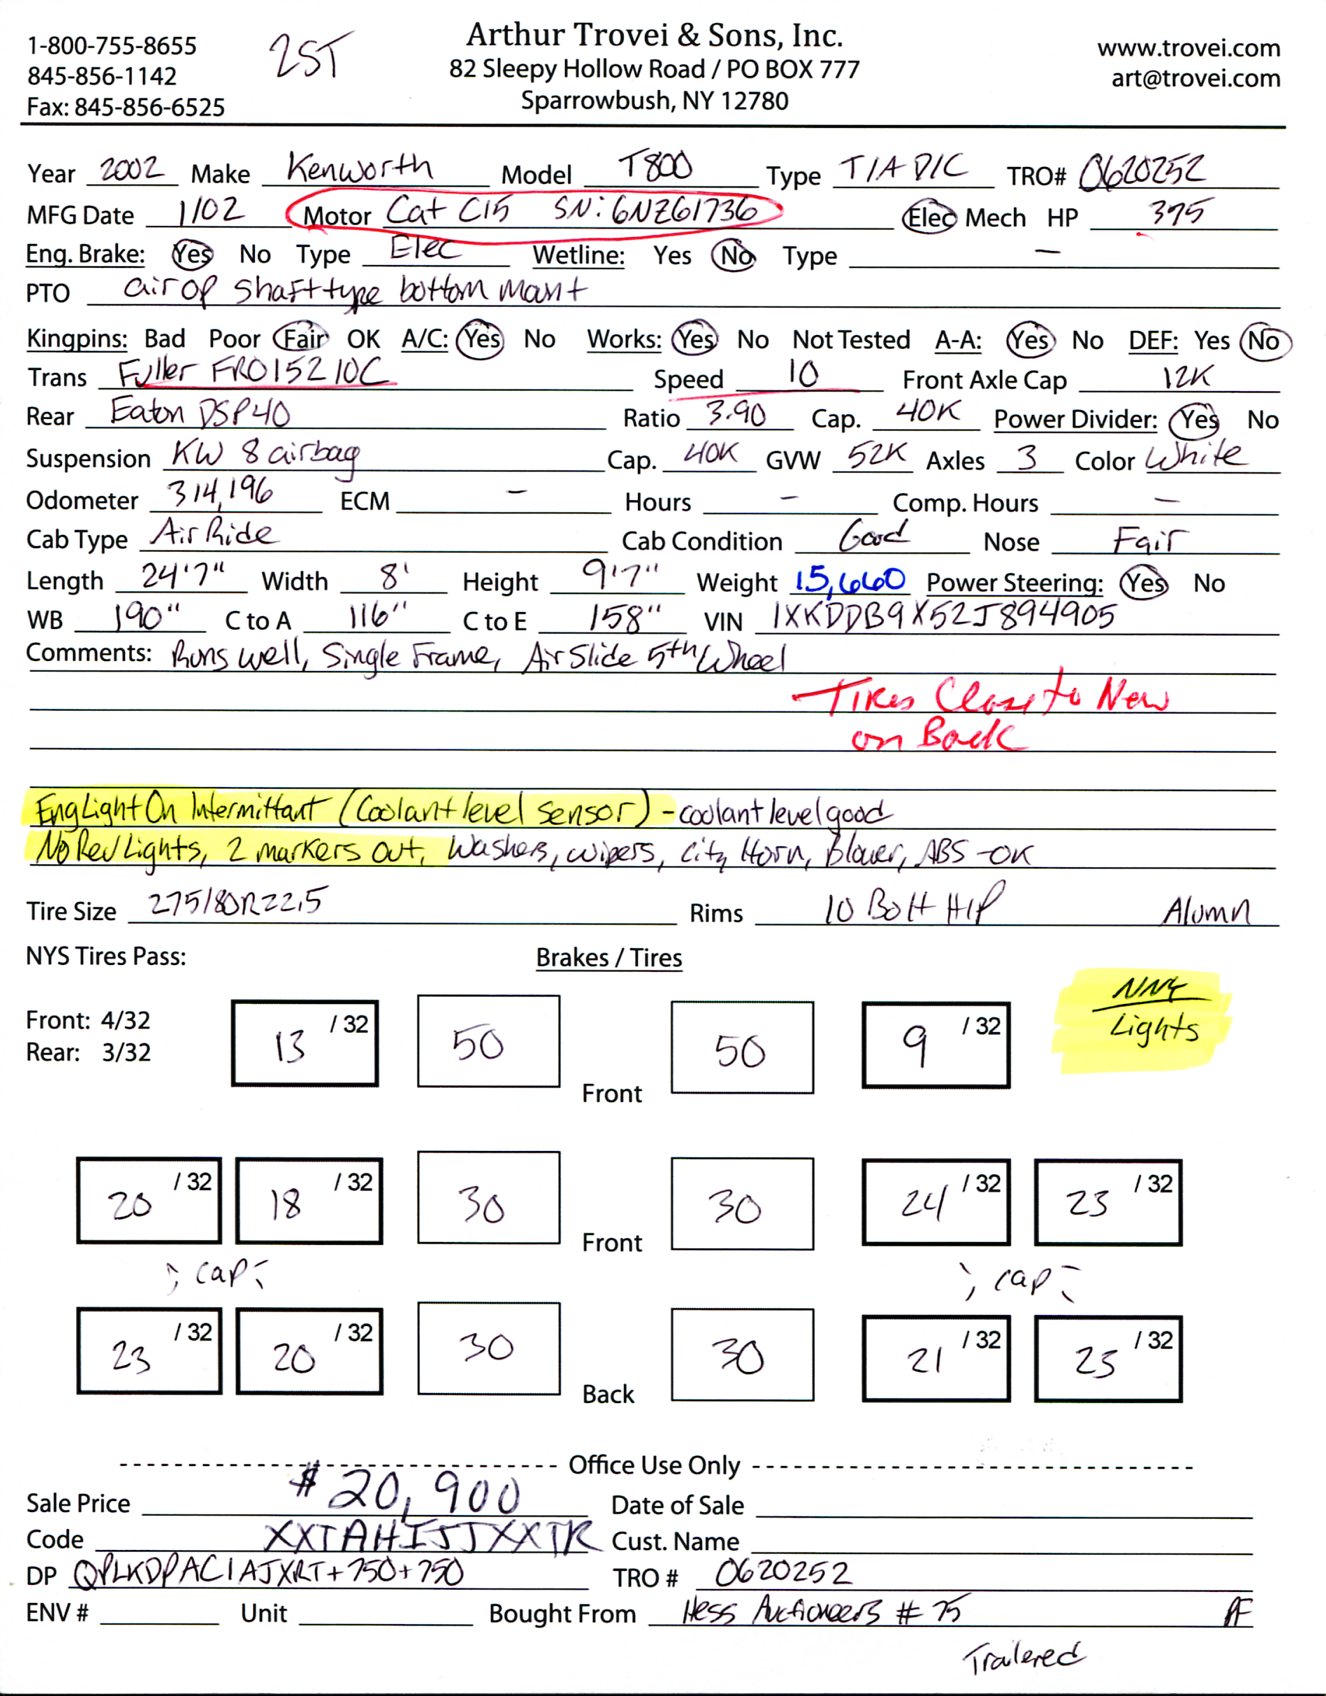 1-800-755-8655
845-856-1142
Fax: 845-856-6525
2ST
Arthur Trovei & Sons, Inc.
82 Sleepy Hollow Road / PO BOX 777
Sparrowbush, NY 12780
www.trovei.com
art@trovei.com
Year 2002 Make Kenworth Model T800 Type T/A D/C TRO# 0620252
MFG Date 1/02 Motor Cat C15 SN: 6NZ61736 Elec Mech HP 375
Eng. Brake: Yes No Type Elec Wetline: Yes No Type —
PTO air op shaft type bottom mount
Kingpins: Bad Poor Fair OK A/C: Yes No Works: Yes No Not Tested A-A: Yes No DEF: Yes No
Trans Fuller FRO15210C Speed 10 Front Axle Cap 12K
Rear Eaton DSP40 Ratio 3.90 Cap. 40K Power Divider: Yes No
Suspension KW 8 airbag Cap. 40K GVW 52K Axles 3 Color White
Odometer 314,196 ECM – Hours – Comp. Hours —
Cab Type Air Ride Cab Condition Good Nose Fair
Length 24'7" Width 8' Height 9'7" Weight 15,660 Power Steering: Yes No
WB 190" C to A 116" C to E 158" VIN 1XKDDB9X52J894905
Comments: Runs well, Single Frame, Air Slide 5th Wheel
Tires Close to New
on Back
Eng Light On Intermittant (Coolant level sensor) - coolant level good
No Rev Lights, 2 markers out, Washers, wipers, city Horn, Blower, ABS - OK
Tire Size 275/80R22.5 Rims 10 Bolt H/P Alumn
NYS Tires Pass: Brakes / Tires
Front: 4/32
Rear: 3/32
13 /32 50 Front 50 9 /32
NNY
Lights
20 /32 18 /32 30 Front 30 24 /32 23 /32
cap cap
23 /32 20 /32 30 Back 30 21 /32 25 /32
Office Use Only
Sale Price $20,900 Date of Sale
Code XXTAHIJJJXXTR Cust. Name
DP QPLKDPACIAJXRT+750+750 TRO # 0620252
ENV # Unit Bought From Hess Auctioneers # 75 AF
Trailered